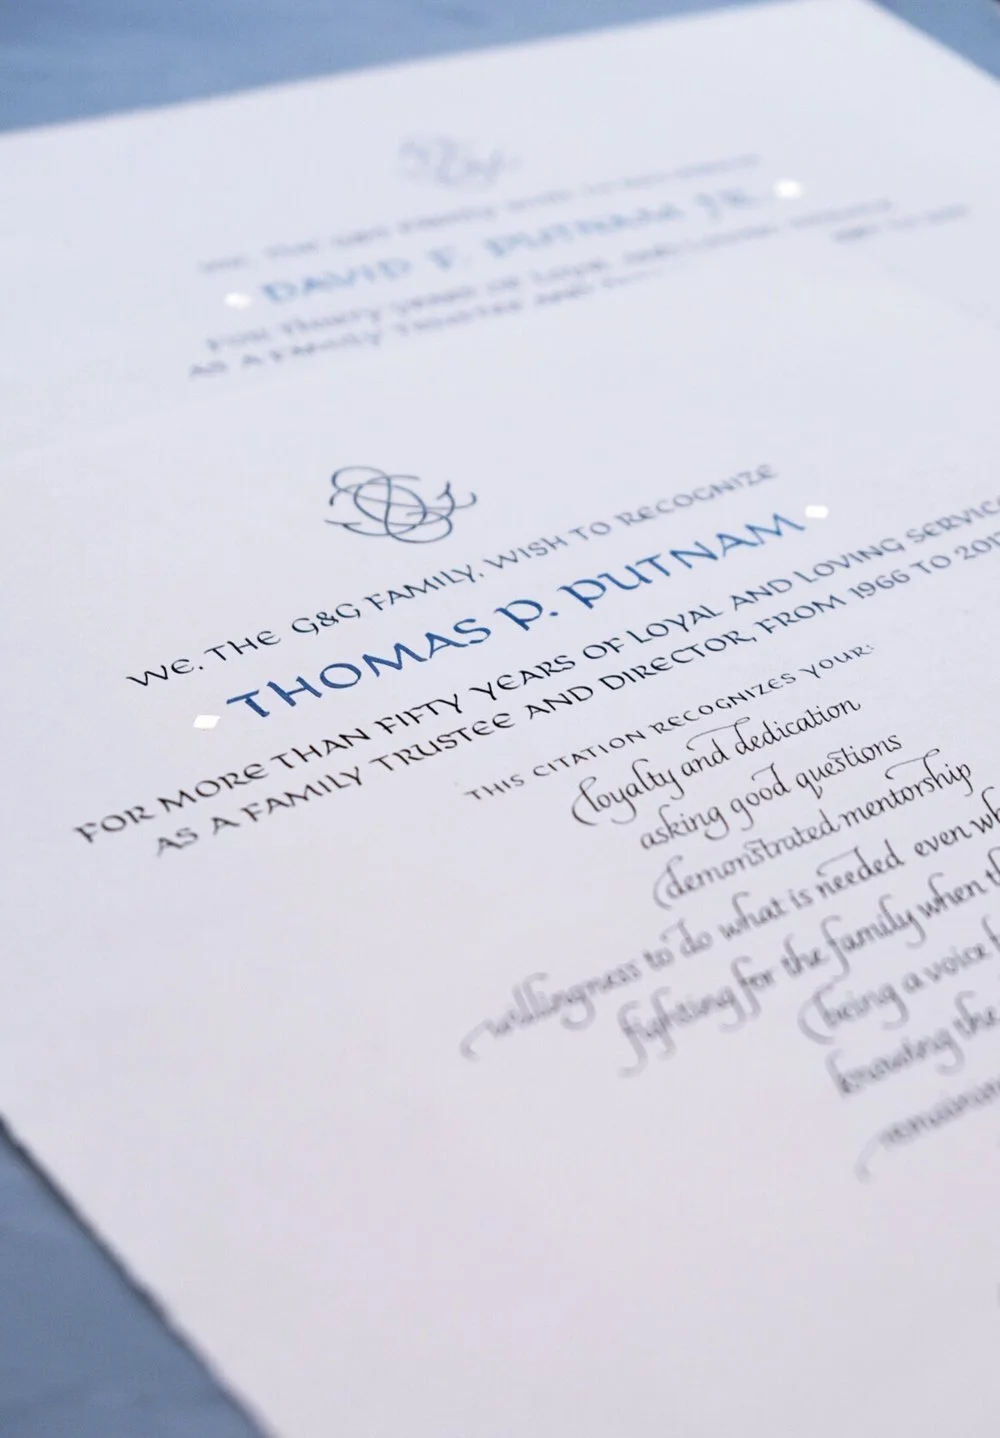 DAVID F. PUTNAM JR.
FOR THIRTY YEARS OF LOYAL AND LOVING
AS A FAMILY TRUSTEE AND
WE, THE G&G FAMILY, WISH TO RECOGNIZE
THOMAS P. PUTNAM
FOR MORE THAN FIFTY YEARS OF LOYAL AND LOVING SERVIC
AS A FAMILY TRUSTEE AND DIRECTOR, FROM 1966 TO 201
THIS CITATION RECOGNIZES YOUR:
loyalty and dedication
asking good questions
demonstrated mentorship
willingness to do what is needed even wh
fighting for the family when th
being a voice f
knowing the
remaining